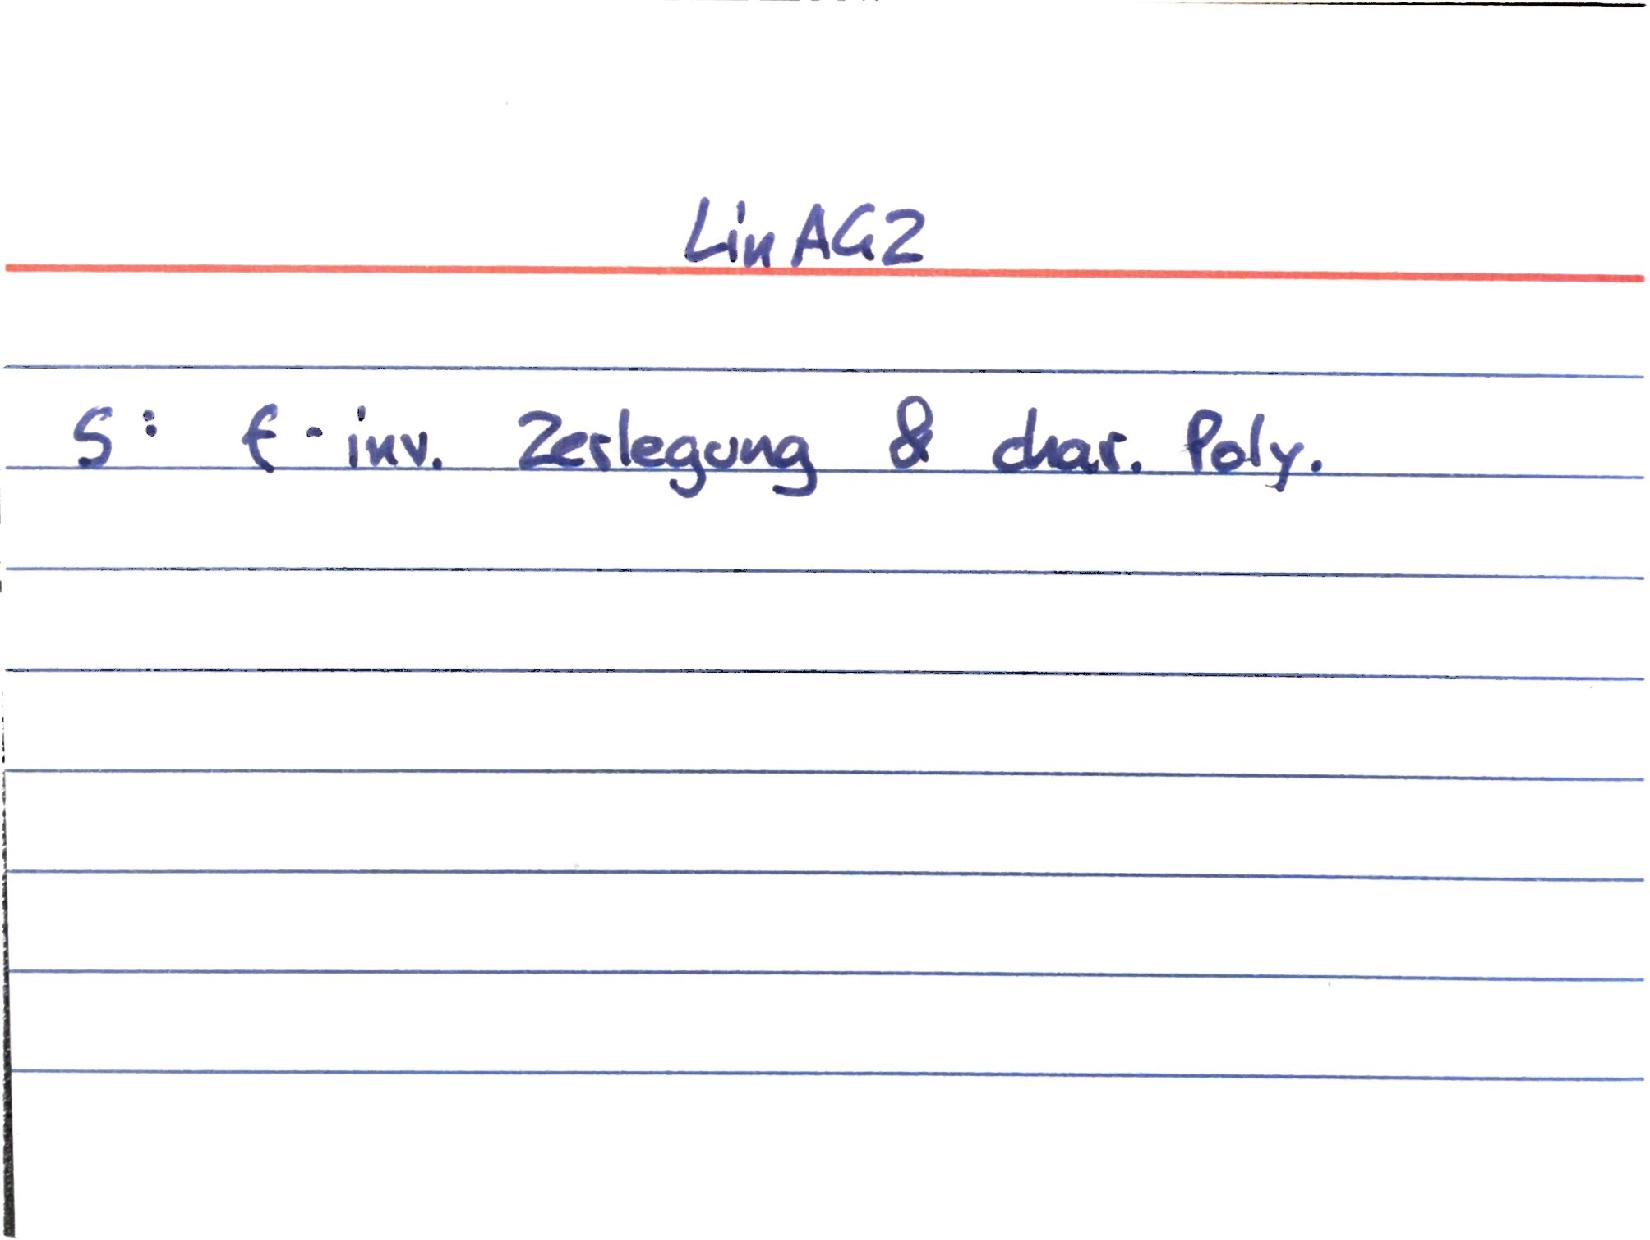 LinAG2
S: f-inv. Zerlegung & char. Poly.